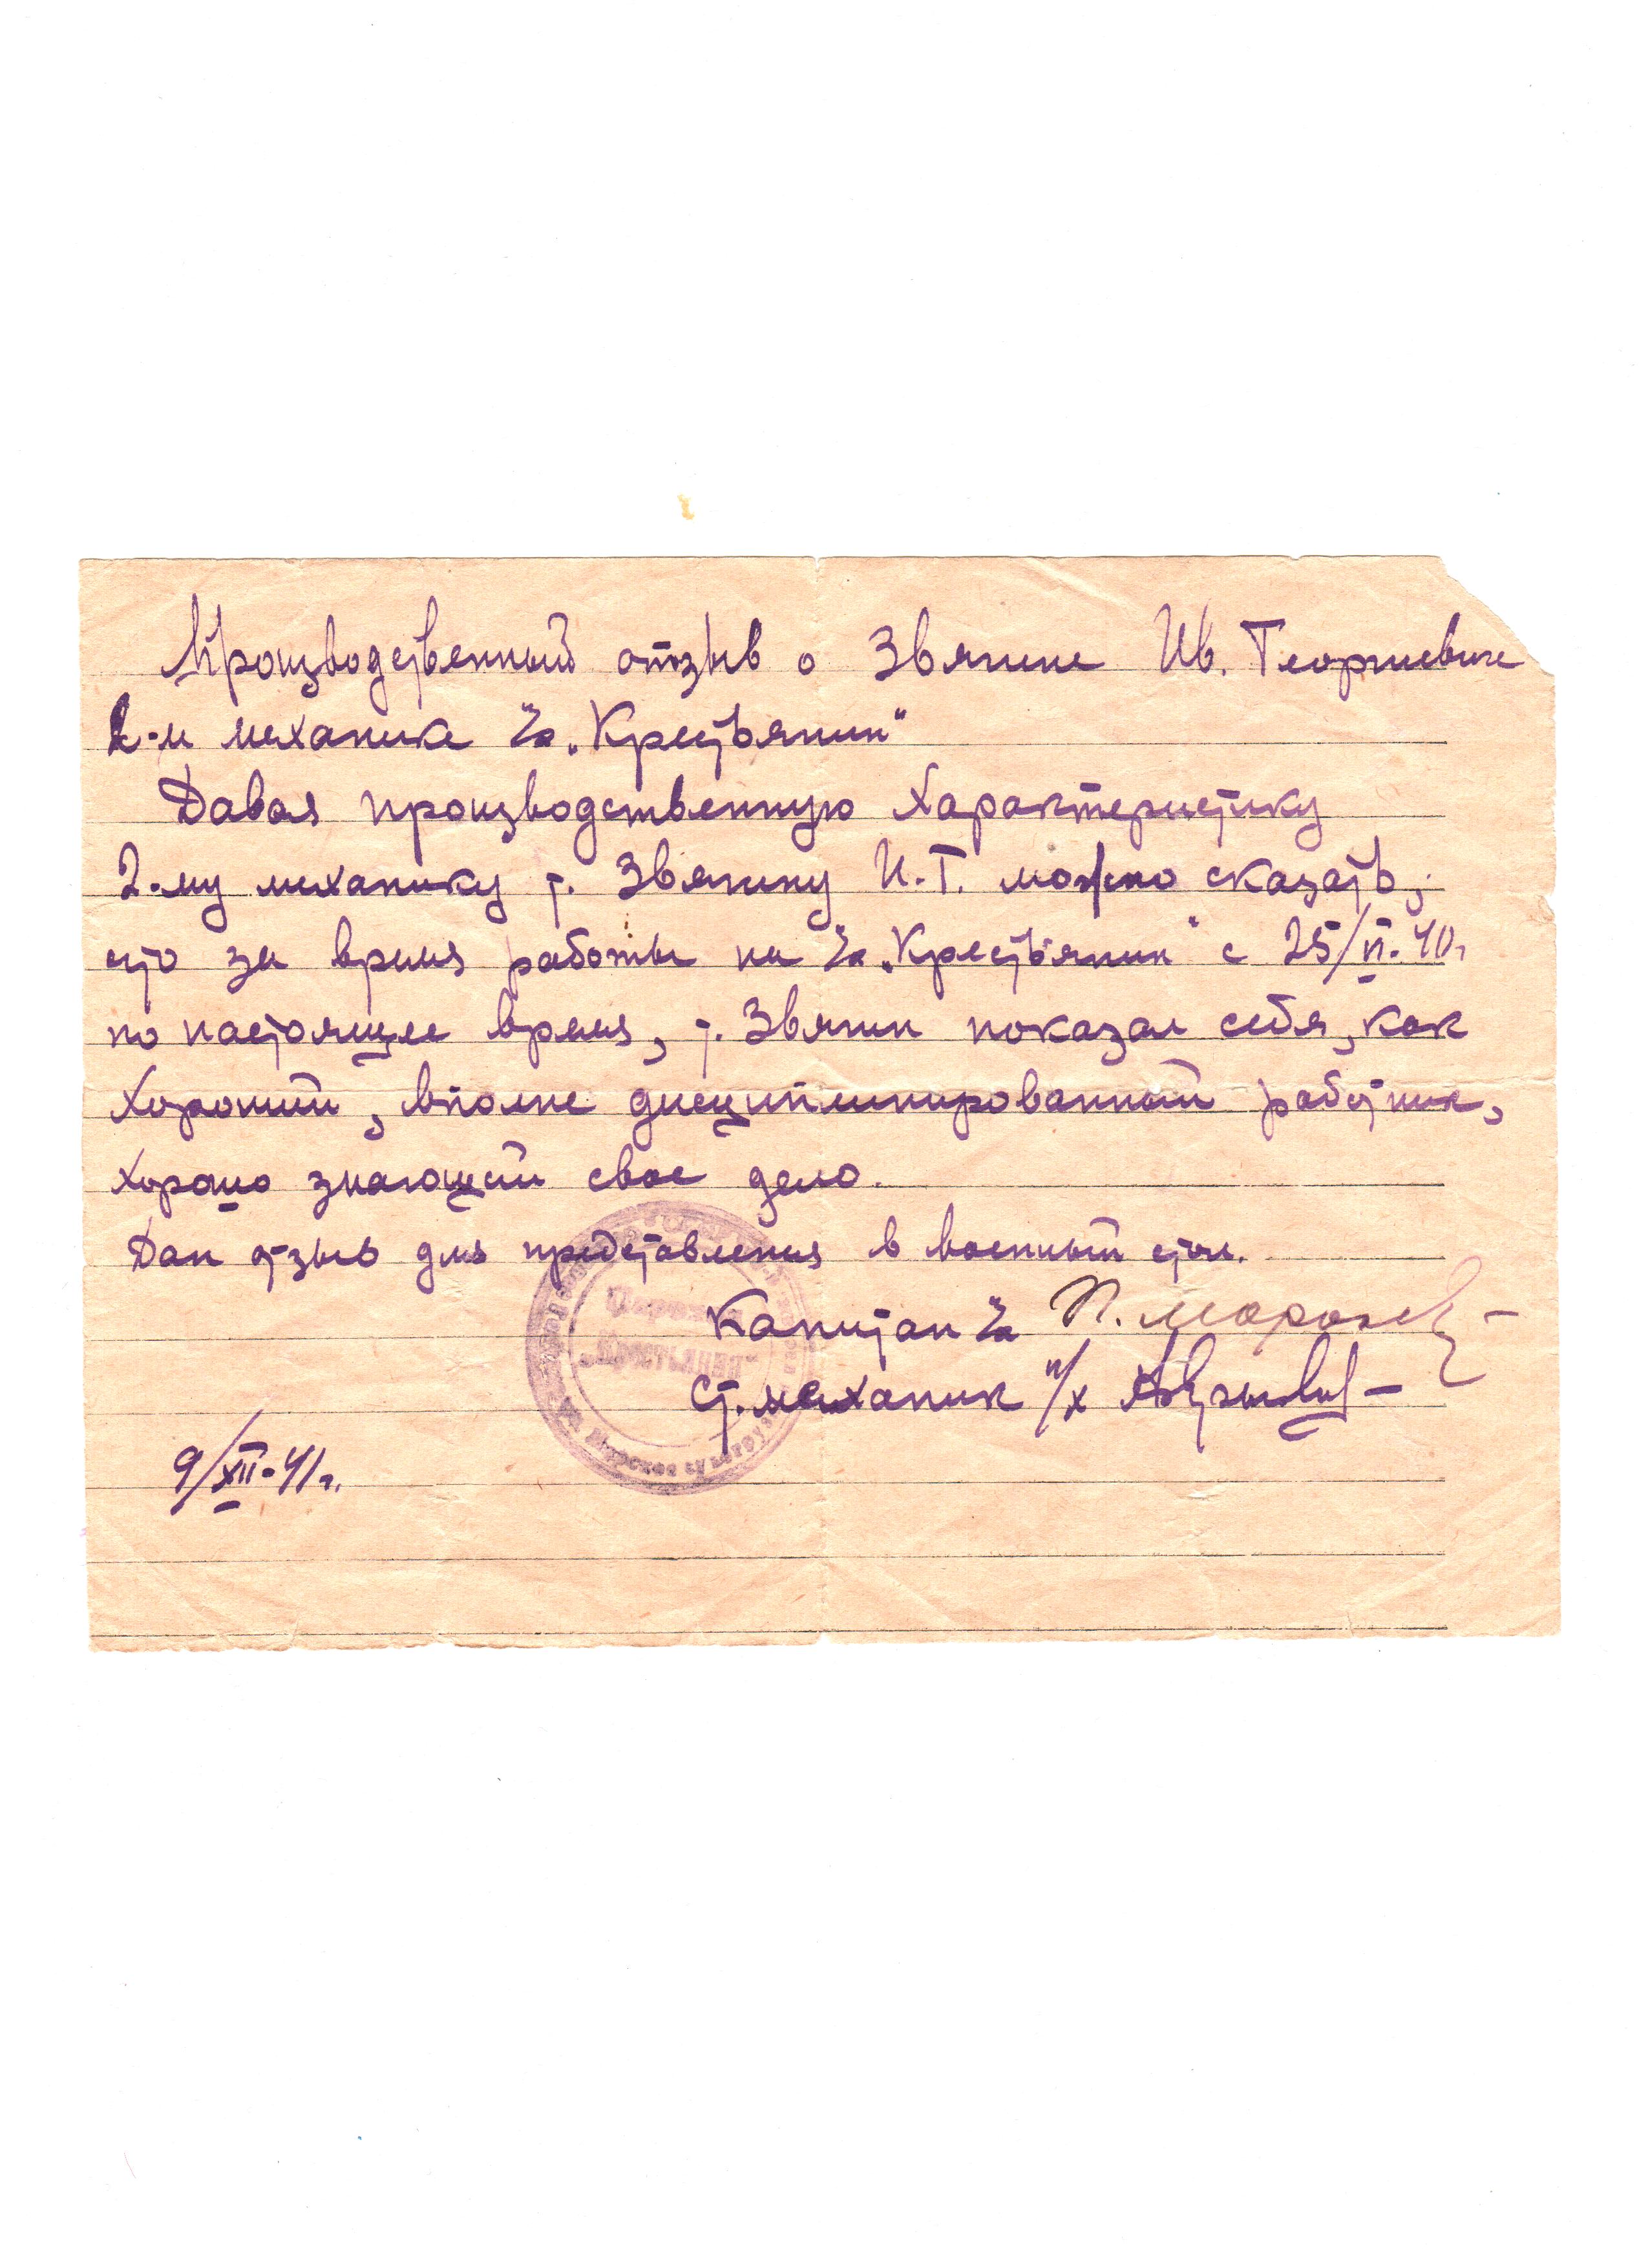 Производственный отзыв о Звягине Ив. Георгиевиче
2-м механике п/х „Крестьянин"
Давая производственную характеристику
2-му механику т. Звягину И.Г. можно сказать,
что за время работы на п/х „Крестьянин" с 25/VI-40г
по настоящее время, т. Звягин показал себя, как
хороший, вполне дисциплинированный работник,
хорошо знающий свое дело.
Дан отзыв для представления в военный стол.
Капитан п/х П.
Ст. механик п/х
9/XII-41г.
Пароход
„Крестьянин"